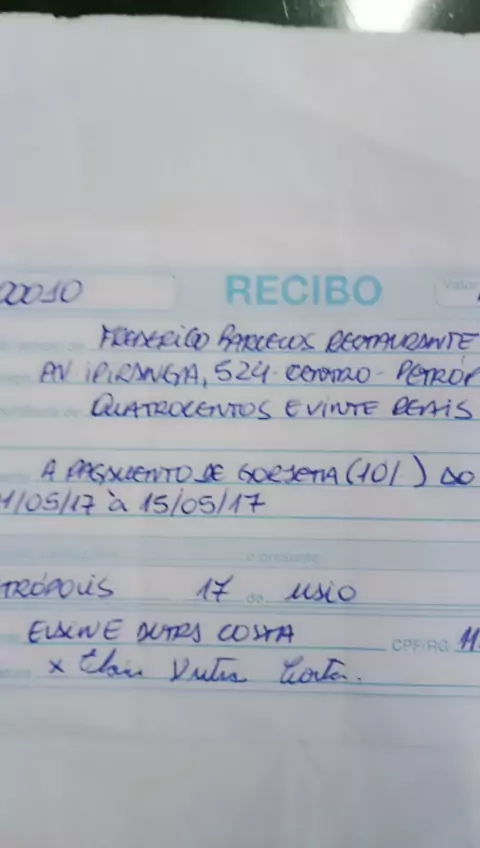 00010 RECIBO Valor
FREDERICO BARCELOS RESTAURANTE
AV. IPIRANGA, 524. CENTRO - PETRÓP
QUATROCENTOS E VINTE REAIS
A PAGAMENTO DE GORJETA (10%) DO
1/05/17 à 15/05/17
o presente
TRÓPOLIS 17 de MAIO
ELAINE DUTRA COSTA CPF/RG 11
x Elaine Dutra Costa.